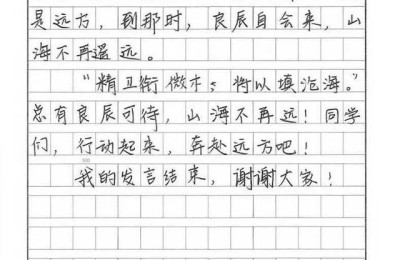 是远方，到那时，良辰自会来，山
海不再遥远。
“精卫衔微木；将以填沧海。”
总有良辰可待，山海不再远！同学
们，行动起来，奔赴远方吧！
我的发言结束，谢谢大家！